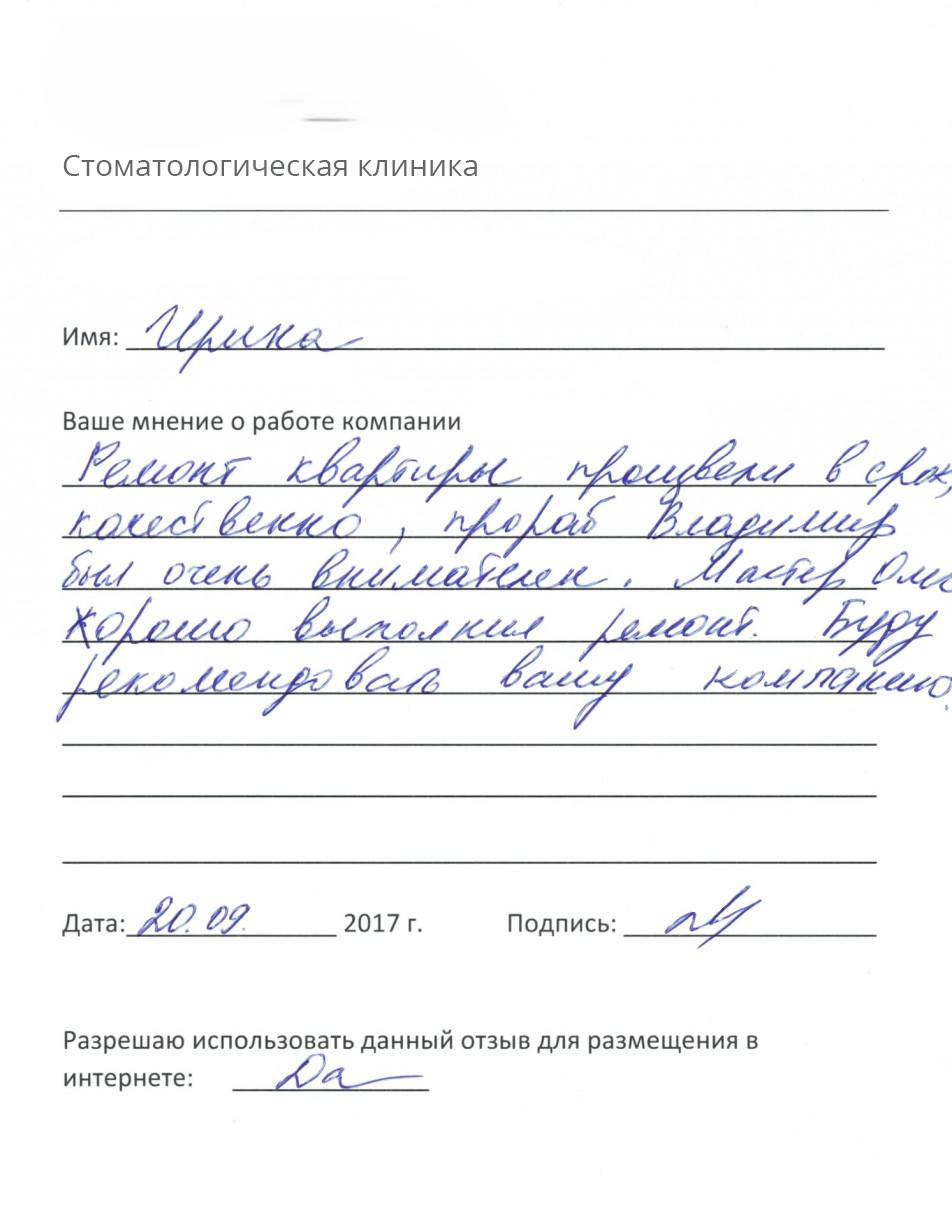 Стоматологическая клиника
Имя: Ирина
Ваше мнение о работе компании
Ремонт квартиры произвели в срок,
качественно, прораб Владимир
был очень внимателен. Мастер
Хорошо выполнил ремонт. Буду
рекомендовать вашу компанию.
Дата: 20.09. 2017 г. Подпись:
Разрешаю использовать данный отзыв для размещения в
интернете: Да